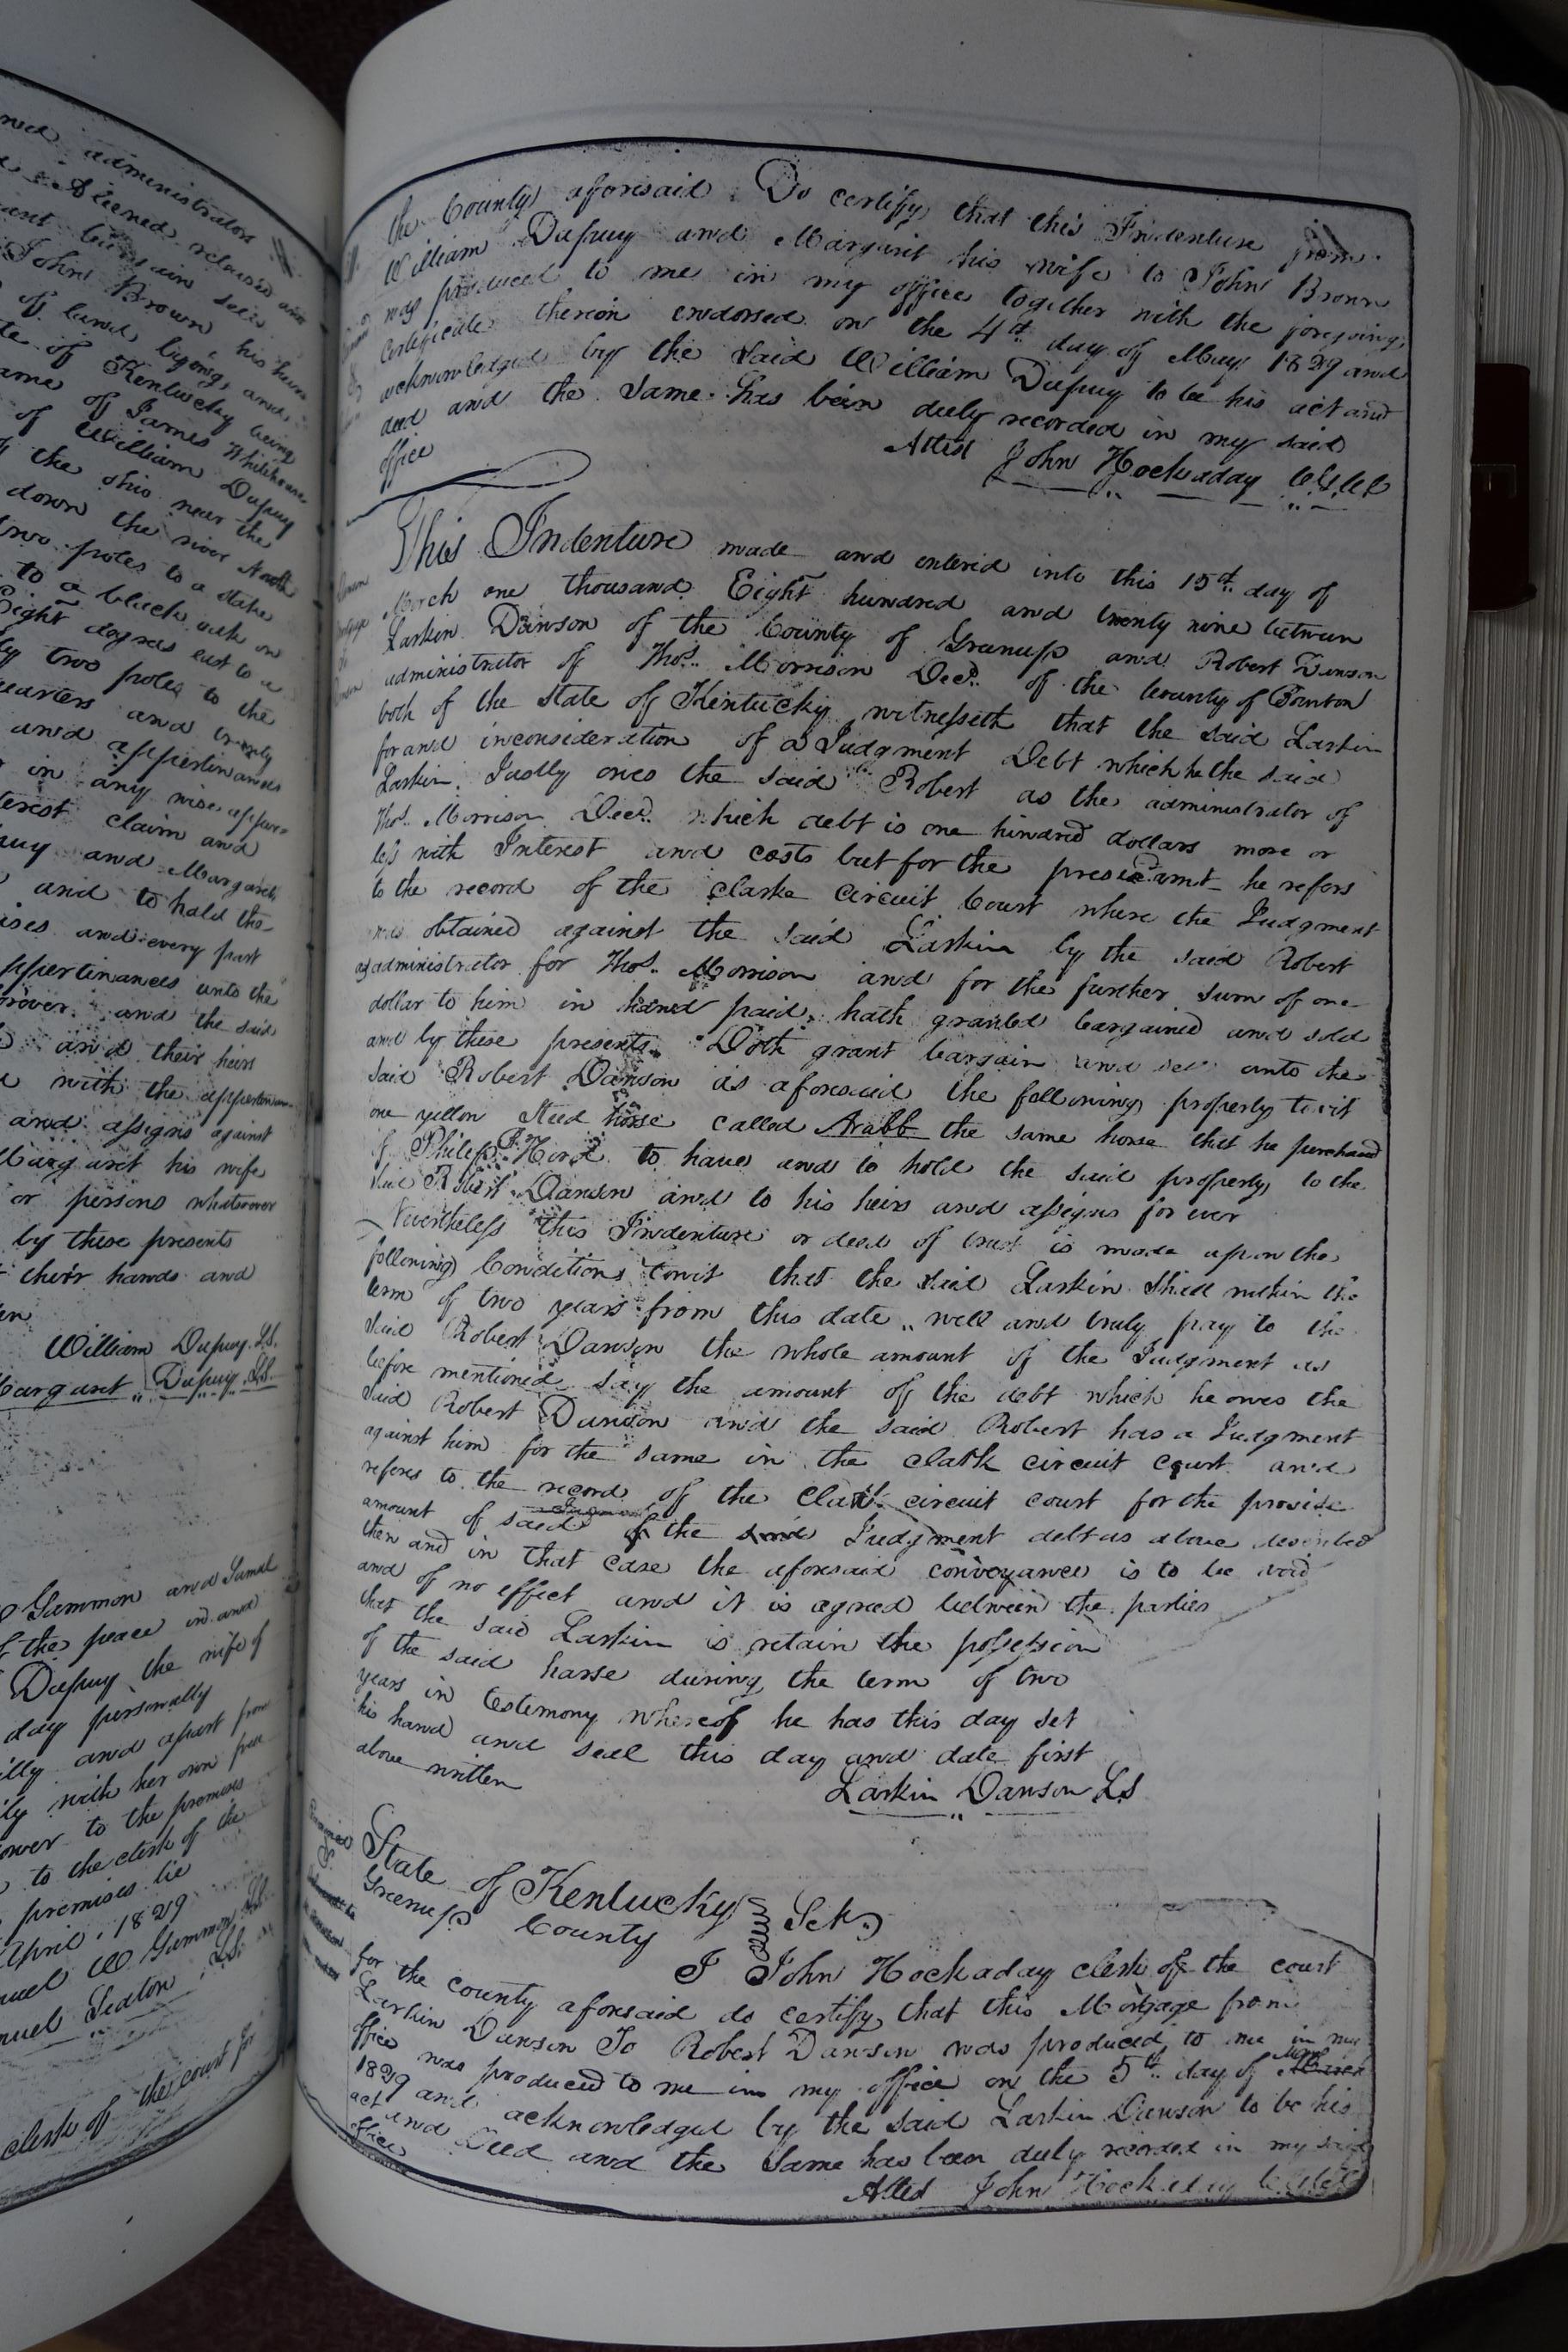 ned administrators
& Aliened released and
ant bargain sell
John Brown his heirs
of land lying and
te of Kentucky being
ame of James Whitehouse
of William Dupuy
the ohio near the
down the river North
two poles to a stake
to a black oak on
Eight degrees east to a
ly two poles to the
quarters and twenty
and appertinances
in any wise apper
terest claim and
puy and Margaret
and to hold the
ises and every part
appertinances unto the
orever and the said
and their heirs
with the appertenan
and assigns against
Margaret his wife
or persons whatsoever
by these presents
their hands and
en
William Dupuy LS.
Margaret Dupuy LS.
Gammon and Samuel
of the peace in and
Dupuy the wife of
day personally
illy and apart from
ily with her own free
ower to the premises
to the clerk of the
premises lie
April 1829
muel W Gammon LS
muel Seaton LS
clerk of the court for
the County aforesaid Do certify that this Indenture from
William Dupuy and Margaret his wife to John Brown
was produced to me in my office together with the foregoing
Certificate thereon endorsed on the 4th day of May 1829 and
acknowledged by the said William Dupuy to be his act and
deed and the same has been duly recorded in my said
office
Attest John Hockaday
This Indenture made and entered into this 15th day of
March one thousand Eight hundred and twenty nine between
Larkin Dawson of the County of Greenup and Robert Dawson
administrator of Thos. Morrison Decd. of the County of
both of the State of Kentucky witnesseth that the said Larkin
for and inconsideration of a Judgment Debt which he the said
Larkin Justly owes the said Robert as the administrator of
Thos. Morrison Decd. which debt is one hundred dollars more or
less with Interest and costs but for the amt he refers
to the record of the clarke circuit Court where the Judgment
was obtained against the said Larkin by the said Robert
as administrator for Thos. Morrison and for the further sum of one
dollar to him in hand paid, hath granted bargained and sold
and by these presents Doth grant bargain and sell unto the
said Robert Dawson as aforesaid the following property towit
one yellow Stud horse called Arabb the same horse that he purchased
of Philip to have and to hold the said property to the
said Robert Dawson and to his heirs and assigns for ever
Nevertheless this Indenture or deed of trust is made upon the
following Conditions towit that the said Larkin shall within the
term of two years from this date well and truly pay to the
said Robert Dawson the whole amount of the Judgment as
before mentioned say the amount of the debt which he owes the
said Robert Dawson and the said Robert has a Judgment
against him for the same in the clark circuit court and
referes to the record of the Clark circuit court for the
amount of said of the said Judgment debt as above described
then and in that case the aforesaid conveyance is to be void
and of no effect and it is agreed between the parties
that the said Larkin is retain the possession
of the said harse during the term of two
years in testimony whereof he has this day set
his hand and seal this day and date first
above written
Larkin Dawson LS
State of Kentucky
Greenup County Sct
I John Hockaday clerk of the court
for the county aforesaid do certify that this Mortgage from
Larkin Dawson To Robert Dawson was produced to me in my
office was produced to me in my office on the 5th day of
1829 and acknowledged by the said Larkin Dawson to be his
act and Deed and the same has been duly recorded in my said
office
Attest John Hockaday